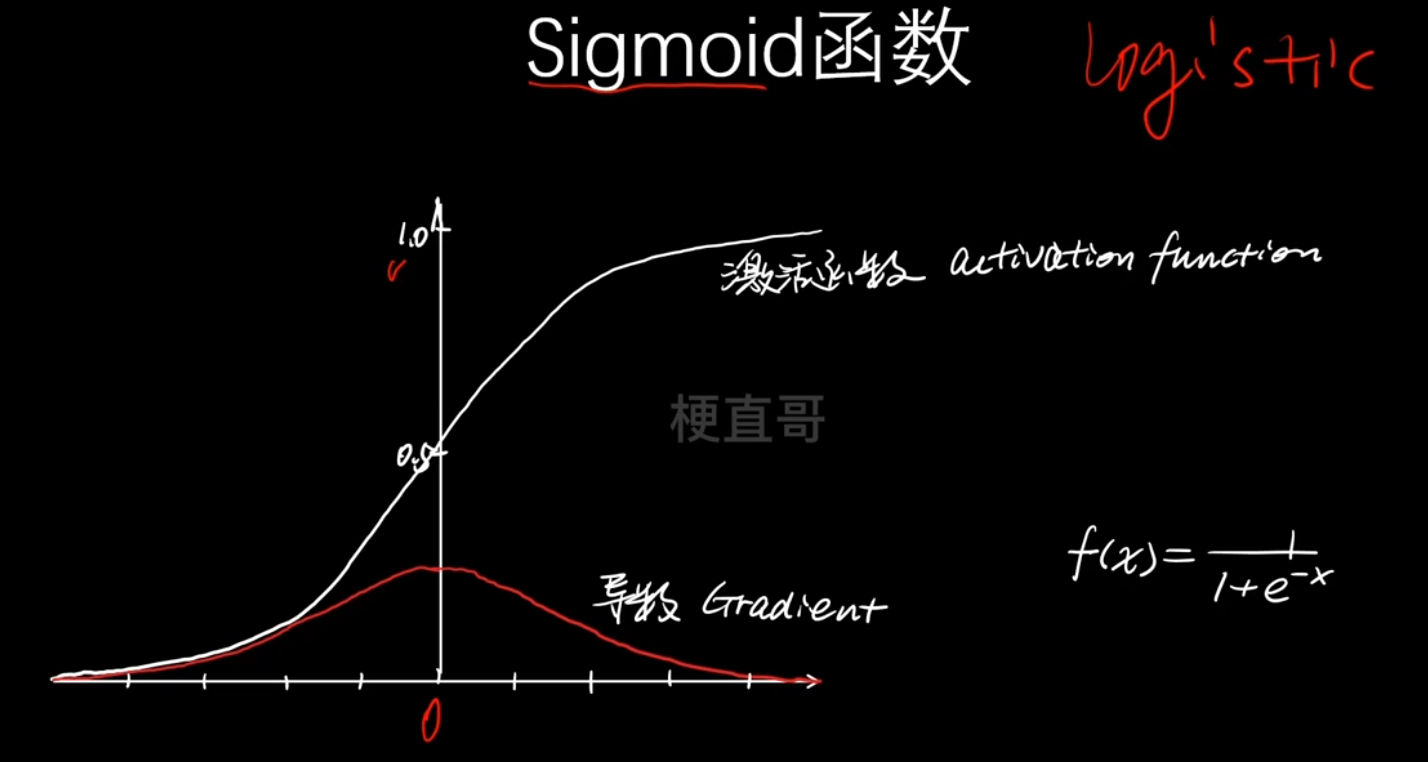 Sigmoid函数
Logistic
1.0
激活函数 activation function
梗直哥
0.5
f(x)=1/(1+e^-x)
导数 Gradient
0